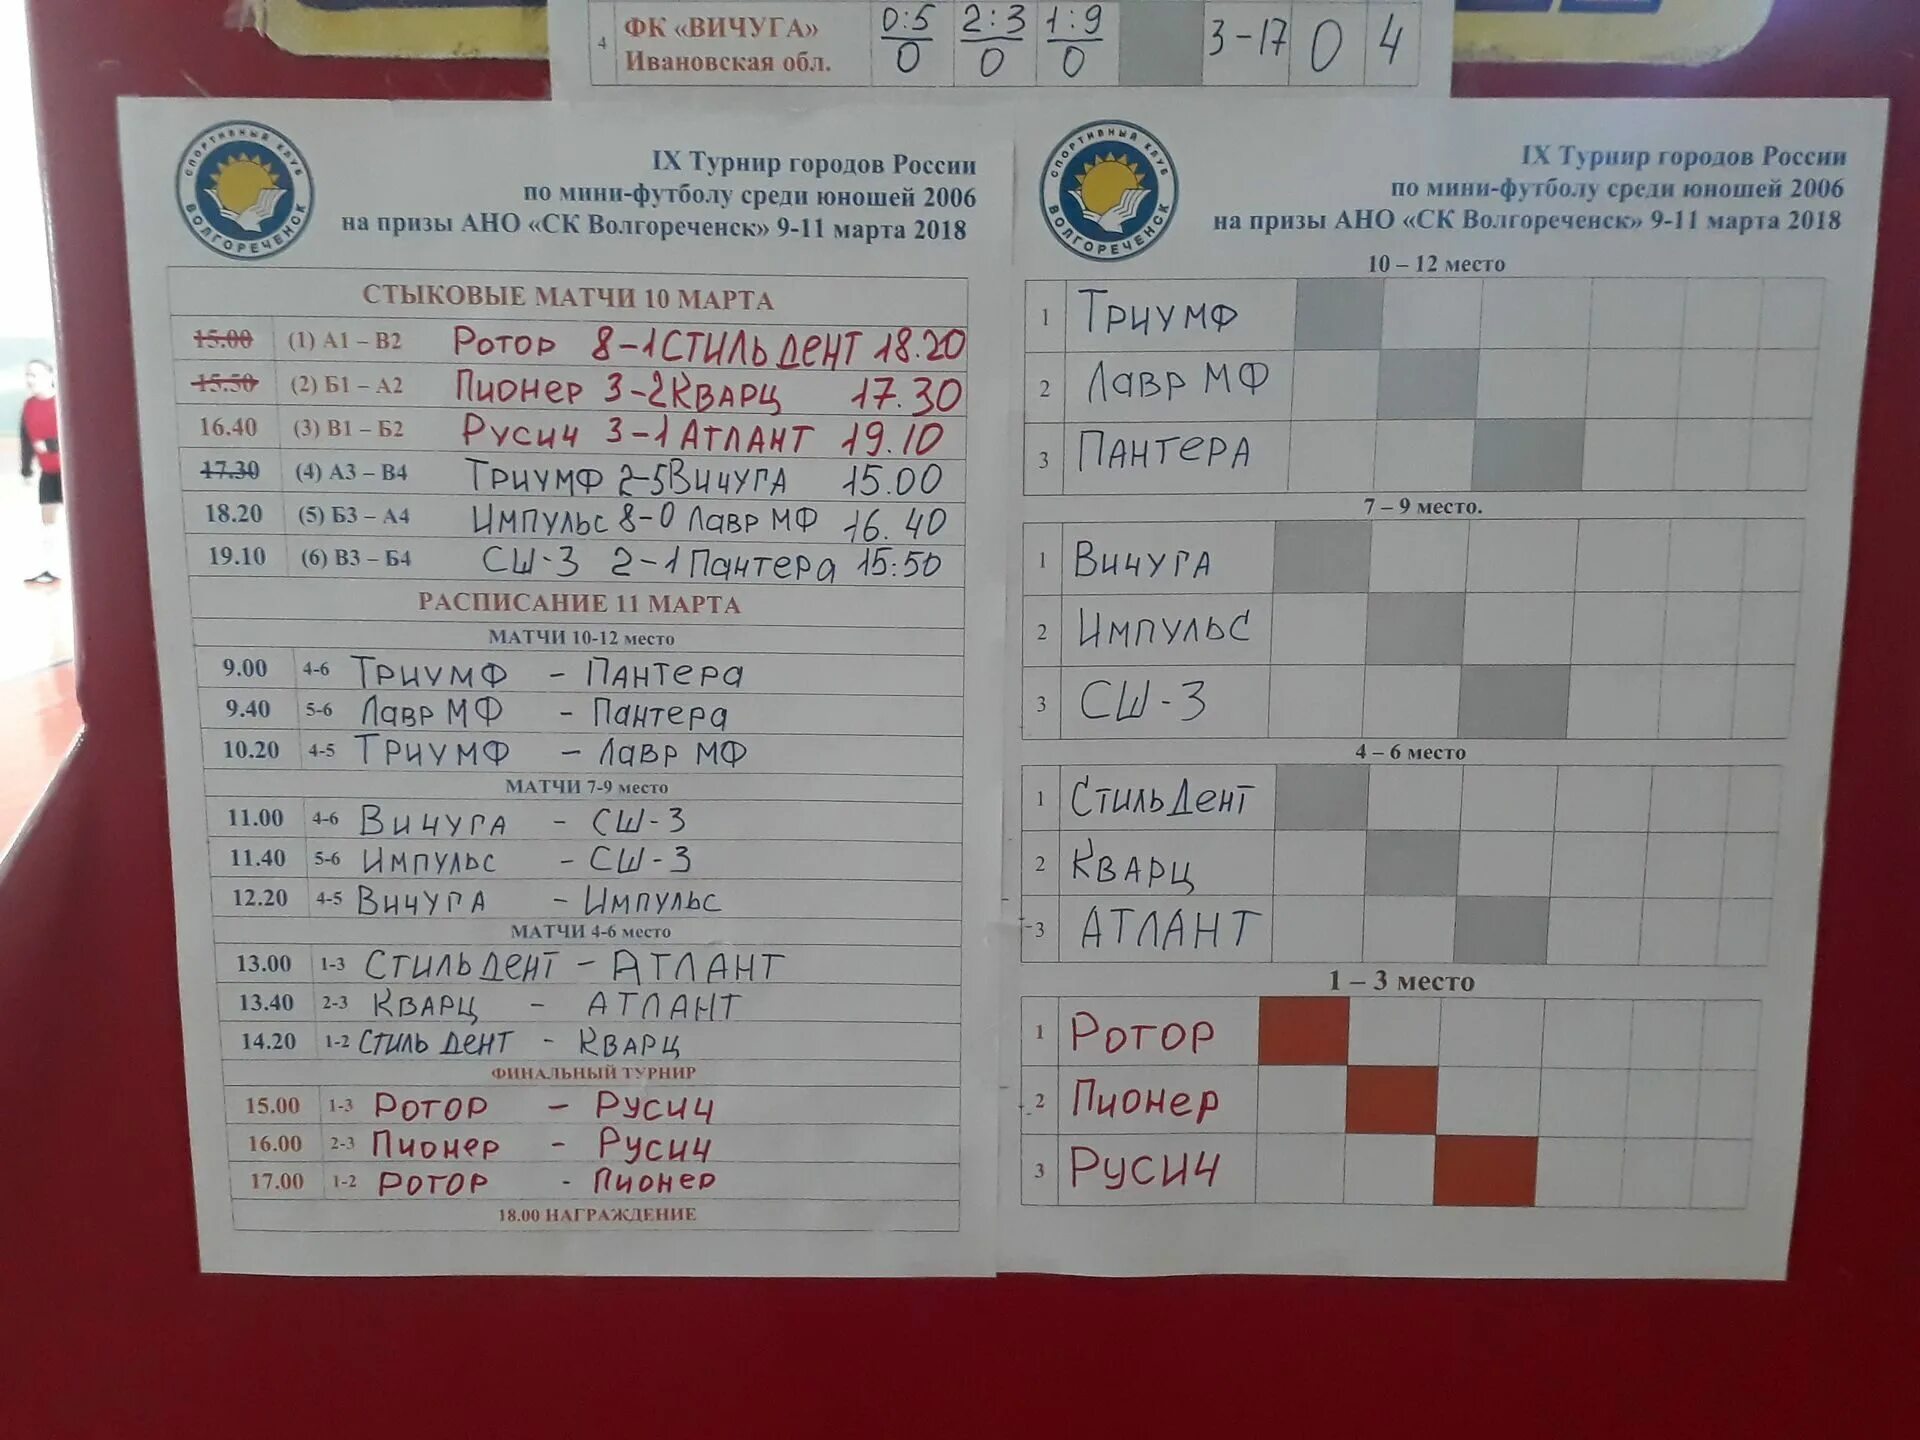 4 ФК «ВИЧУГА» 0:5 2:3 1:9 3-17 0 4
Ивановская обл. 0 0 0
СПОРТИВНЫЙ КЛУБ
ВОЛГОРЕЧЕНСК
IX Турнир городов России
по мини-футболу среди юношей 2006
на призы АНО «СК Волгореченск» 9-11 марта 2018
СТЫКОВЫЕ МАТЧИ 10 МАРТА
15.00 (1) А1 – В2 Ротор 8-1 СТИЛЬ ДЕНТ 18.20
15.50 (2) Б1 – А2 Пионер 3-2 Кварц 17.30
16.40 (3) В1 – Б2 Русич 3-1 АТЛАНТ 19.10
17.30 (4) А3 – В4 Триумф 2-5 Вичуга 15.00
18.20 (5) Б3 – А4 Импульс 8-0 Лавр МФ 16.40
19.10 (6) В3 – Б4 СШ-3 2-1 Пантера 15:50
РАСПИСАНИЕ 11 МАРТА
МАТЧИ 10-12 место
9.00 4-6 Триумф - Пантера
9.40 5-6 Лавр МФ - Пантера
10.20 4-5 Триумф - Лавр МФ
МАТЧИ 7-9 место
11.00 4-6 Вичуга - СШ-3
11.40 5-6 Импульс - СШ-3
12.20 4-5 Вичуга - Импульс
МАТЧИ 4-6 место
13.00 1-3 Стиль Дент - АТЛАНТ
13.40 2-3 Кварц - АТЛАНТ
14.20 1-2 Стиль Дент - Кварц
ФИНАЛЬНЫЙ ТУРНИР
15.00 1-3 Ротор - Русич
16.00 2-3 Пионер - Русич
17.00 1-2 Ротор - Пионер
18.00 НАГРАЖДЕНИЕ
СПОРТИВНЫЙ КЛУБ
ВОЛГОРЕЧЕНСК
IX Турнир городов России
по мини-футболу среди юношей 2006
на призы АНО «СК Волгореченск» 9-11 марта 2018
10 – 12 место
1 Триумф
2 Лавр МФ
3 Пантера
7 – 9 место.
1 Вичуга
2 Импульс
3 СШ-3
4 – 6 место
1 Стиль Дент
2 Кварц
3 АТЛАНТ
1 – 3 место
1 Ротор
2 Пионер
3 Русич